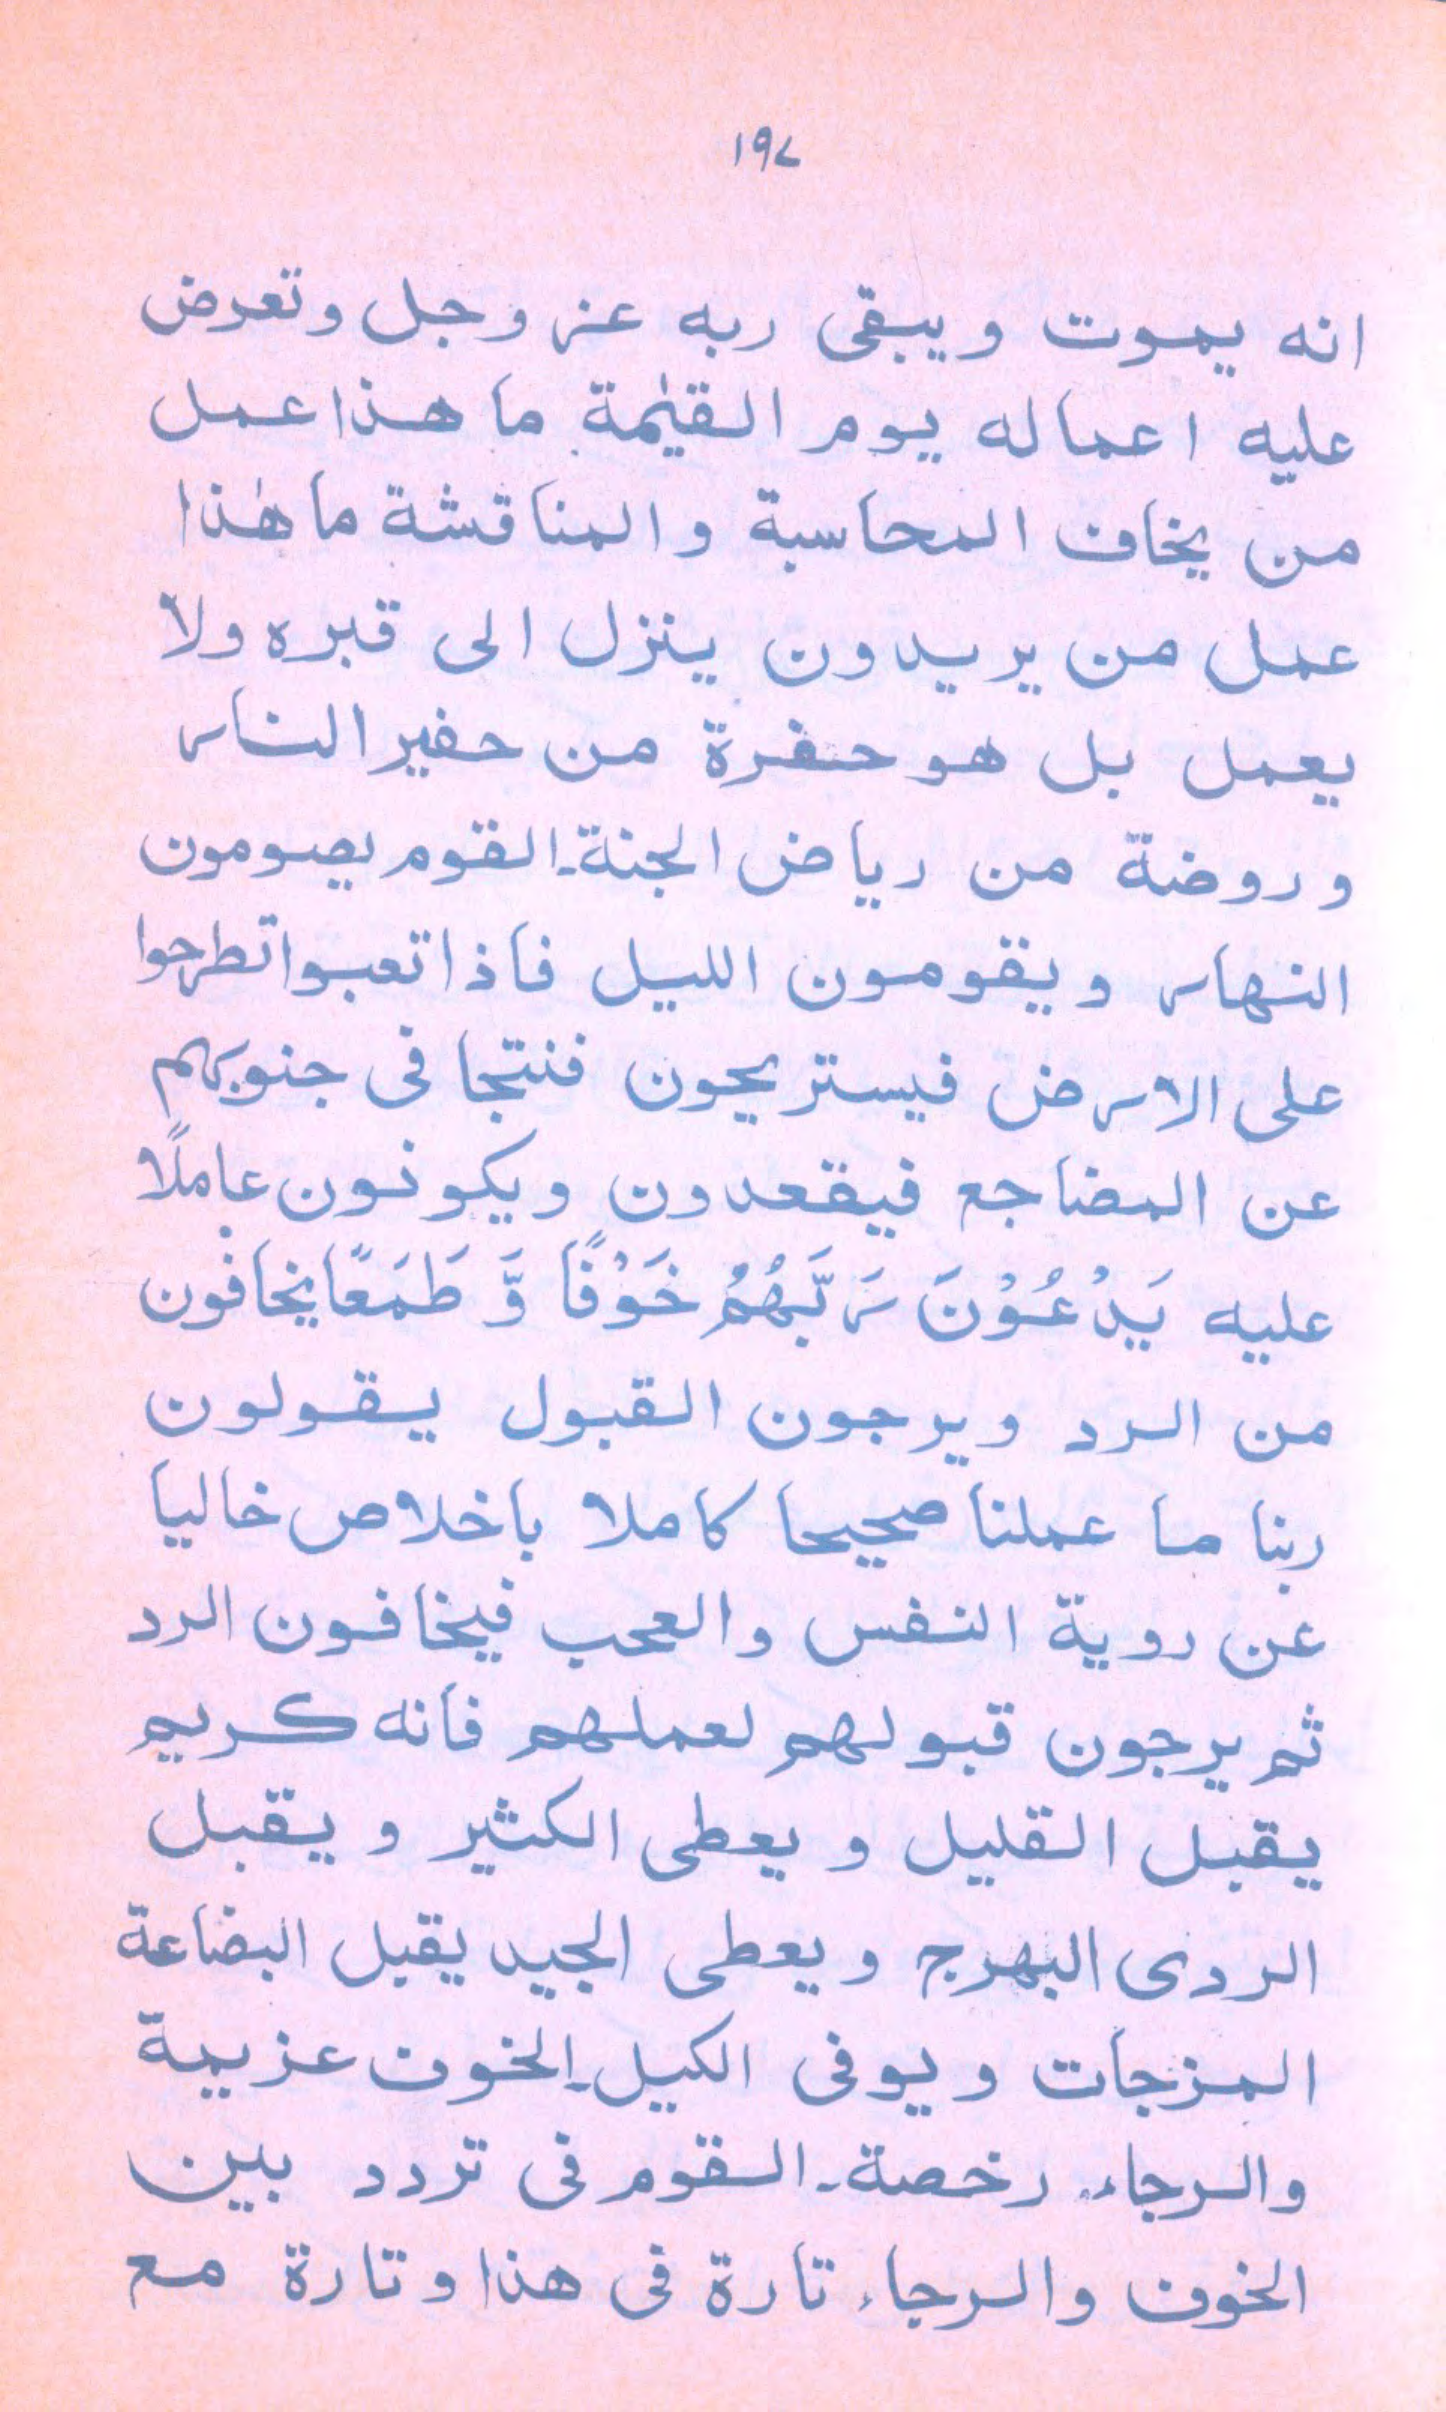 ١٩٧
انه يموت ويبقى ربه عز وجل وتعرض
عليه اعماله يوم القيٰمة ما هذا عمل
من يخاف المحاسبة والمناقشة ما هٰذا
عمل من يريدون ينزل الى قبره ولا
يعمل بل هو حفرة من حفير النار
وروضة من رياض الجنة۔ القوم يصومون
النهار ويقومون الليل فاذا تعبوا تطرحوا
على الارض فيستريحون فنتجافى جنوبهم
عن المضاجع فيقعدون ويكونون عاملًا
عليه يَدْعُوْنَ رَبَّهُمْ خَوْفًا وَّ طَمَعًا يخافون
من الرد ويرجون القبول يقولون
ربنا ما عملنا صحيحا كاملا باخلاص خاليا
عن روية النفس والعجب فيخافون الرد
ثم يرجون قبولهم لعملهم فانه كريم
يقبل القليل ويعطى الكثير ويقبل
الردى البهرج ويعطى الجيد يقبل البضاعة
المزجات ويوفى الكيل۔ الخوف عزيمة
والرجاء رخصة۔ القوم فى تردد بين
الخوف والرجاء تارة فى هذا وتارة مع